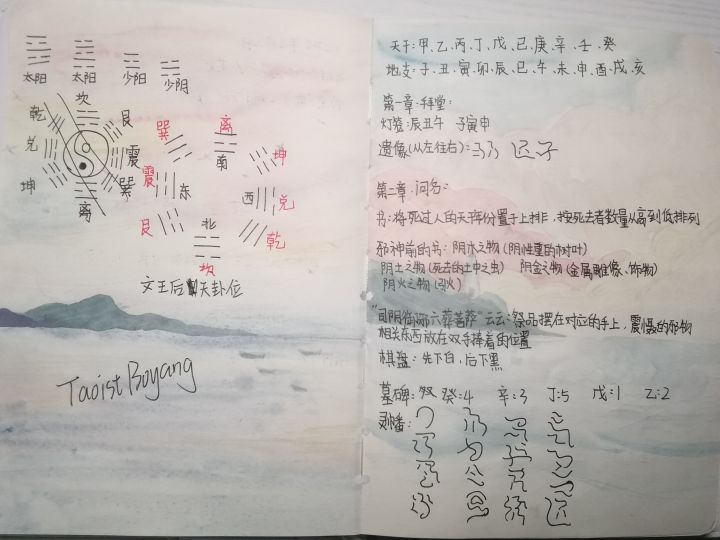 太阳 太阳 少阳 少阴
坎
乾 艮
兑 震
坤 巽
离
巽 离 坤
南
震 东 西 兑
艮 北 乾
坎
文王后天卦位
Taoist Boyang
天干:甲、乙、丙、丁、戊、已、庚、辛、壬、癸
地支:子、丑、寅、卯、辰、巳、午、未、申、酉、戌、亥
第一章:拜堂:
灯笺:辰丑午 子寅申
遗像(从左往右):
第二章:问名:
书:将死过人的天干份置于上排,按死去者数量从高到低排列
邪神前的书:阴木之物(阴性重的树叶)
阴土之物(死去的土中之虫) 阴金之物(金属雕像、饰物)
阴火之物(引火)
六葬菩萨"云云:祭品摆在对应的手上,震慑的邪物
相关东西放在双手捧着的位置
棋盘:先下白,后下黑
墓碑: 癸:4 辛:3 丁:5 戊:1 乙:2
幡: